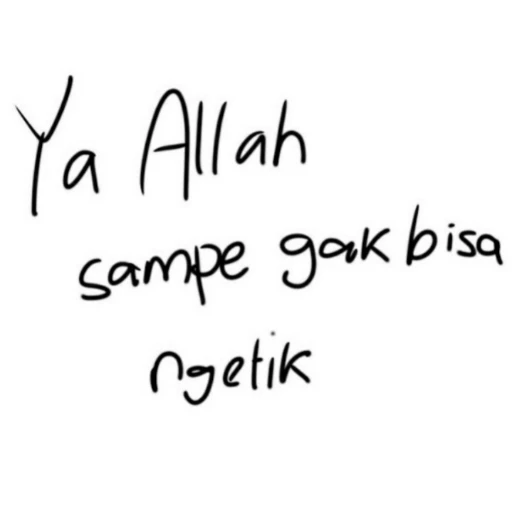 Ya Allah
sampe gak bisa
ngetik